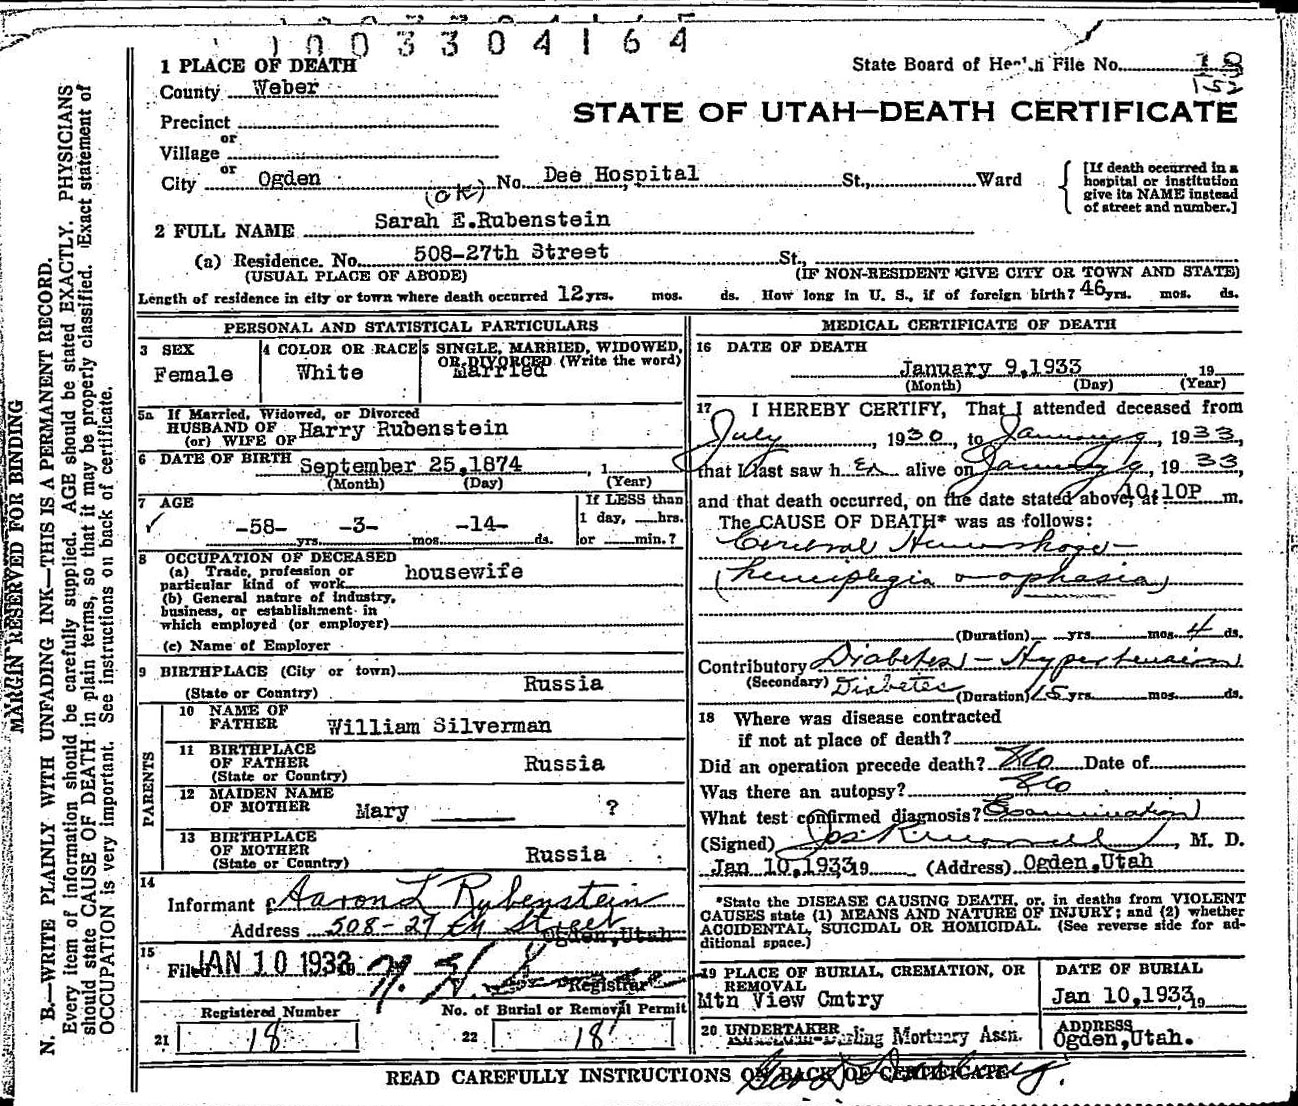 1003304164
1 PLACE OF DEATH
State Board of Health File No.
County Weber
STATE OF UTAH—DEATH CERTIFICATE
Precinct
or
Village
or
City Ogden (OK) No. Dee Hospital St., Ward
[If death occurred in a
hospital or institution
give its NAME instead
of street and number.]
2 FULL NAME Sarah E.Rubenstein
(a) Residence. No. 508-27th Street St.,
(USUAL PLACE OF ABODE) (IF NON-RESIDENT GIVE CITY OR TOWN AND STATE)
Length of residence in city or town where death occurred 12 yrs. mos. ds. How long in U. S., if of foreign birth? 46 yrs. mos. ds.
PERSONAL AND STATISTICAL PARTICULARS
3 SEX
Female
4 COLOR OR RACE
White
5 SINGLE, MARRIED, WIDOWED,
OR DIVORCED (Write the word)
Married
5a If Married, Widowed, or Divorced
HUSBAND OF
(or) WIFE OF Harry Rubenstein
6 DATE OF BIRTH September 25,1874 , 1
(Month) (Day) (Year)
7 AGE
-58- yrs. -3- mos. -14- ds.
If LESS than
1 day, hrs.
or min.?
8 OCCUPATION OF DECEASED
(a) Trade, profession or
particular kind of work housewife
(b) General nature of industry,
business, or establishment in
which employed (or employer)
(c) Name of Employer
9 BIRTHPLACE (City or town)
(State or Country) Russia
PARENTS
10 NAME OF
FATHER William Silverman
11 BIRTHPLACE
OF FATHER Russia
(State or Country)
12 MAIDEN NAME
OF MOTHER Mary ?
13 BIRTHPLACE
OF MOTHER
(State or Country) Russia
14
Informant Aaron L Rubenstein
Address 508-27th Street
Ogden,Utah
15
Filed JAN 10 1933
Registrar
Registered Number
21 18
No. of Burial or Removal Permit
22 18
MEDICAL CERTIFICATE OF DEATH
16 DATE OF DEATH
January 9,1933 , 19
(Month) (Day) (Year)
17 I HEREBY CERTIFY, That I attended deceased from
July , 1930, to January 9, 1933,
that I last saw h er alive on January 9, 1933,
and that death occurred, on the date stated above, at 10:10P m.
The CAUSE OF DEATH* was as follows:
Cerebral Hemorrhage
(hemiplegia aphasia)
(Duration) yrs. mos. 4 ds.
Contributory Diabetes - Hypertension
(Secondary) Diabetes (Duration) 15 yrs. mos. ds.
18 Where was disease contracted
if not at place of death?
Did an operation precede death? No Date of
Was there an autopsy? No
What test confirmed diagnosis? Examination
(Signed) , M. D.
Jan 10,1933 19 (Address) Ogden,Utah
*State the DISEASE CAUSING DEATH, or, in deaths from VIOLENT
CAUSES state (1) MEANS AND NATURE OF INJURY; and (2) whether
ACCIDENTAL, SUICIDAL OR HOMICIDAL. (See reverse side for ad-
ditional space.)
19 PLACE OF BURIAL, CREMATION, OR
REMOVAL
Mtn View Cmtry
DATE OF BURIAL
Jan 10,1933 19
20 UNDERTAKER
Mortuary Assn.
ADDRESS
Ogden,Utah.
READ CAREFULLY INSTRUCTIONS ON BACK OF CERTIFICATE
MARGIN RESERVED FOR BINDING
N. B.—WRITE PLAINLY WITH UNFADING INK—THIS IS A PERMANENT RECORD.
Every item of information should be carefully supplied. AGE should be stated EXACTLY. PHYSICIANS
should state CAUSE OF DEATH in plain terms, so that it may be properly classified. Exact statement of
OCCUPATION is very important. See instructions on back of certificate.